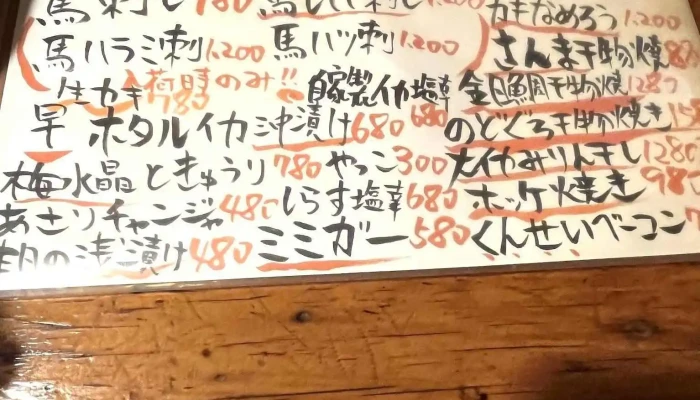 馬刺し 780 馬レバ刺し 1.200 カキなめろう 1.200
馬ハラミ刺 1.200 馬ハツ刺 1.200 さんま干物焼
生カキ 入荷時のみ!! 780 自家製イカ塩辛 680 金目鯛干物焼 1280
早 ホタルイカ沖漬け 680 のどぐろ干物焼き
梅水晶ときゅうり 780 やっこ 300 大イカみりん干し 1280
あさりチャンジャ 480 しらす塩辛 680 ホッケ焼き
の浅漬け 480 ミミガー 580 くんせいベーコン